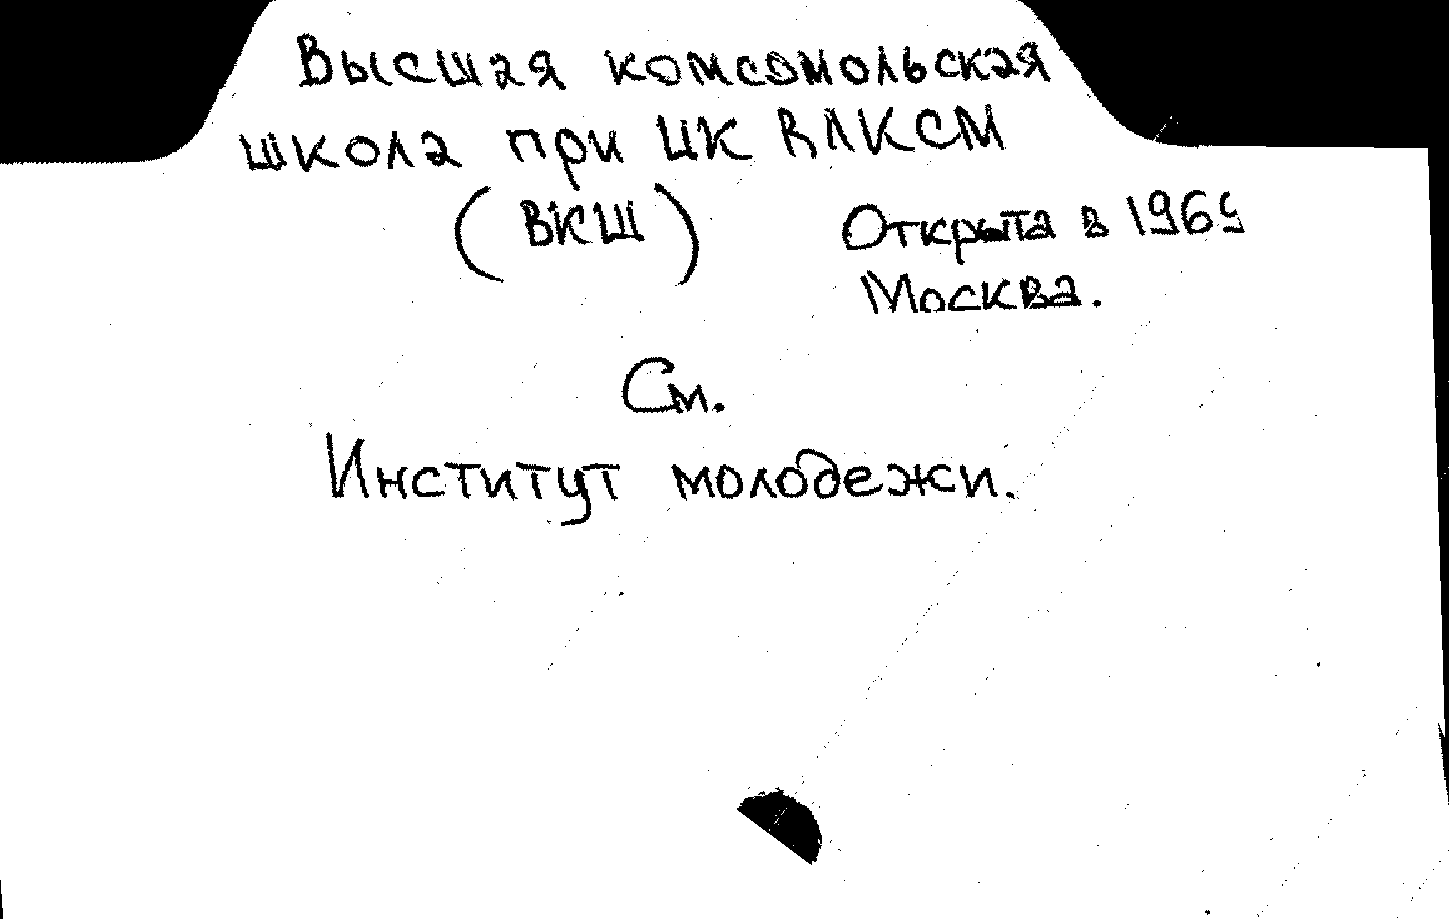 Высшая комсомольская
школа при ЦК ВЛКСМ
(ВКШ) Открыта в 1969
Москва.
См.
Институт молодежи.